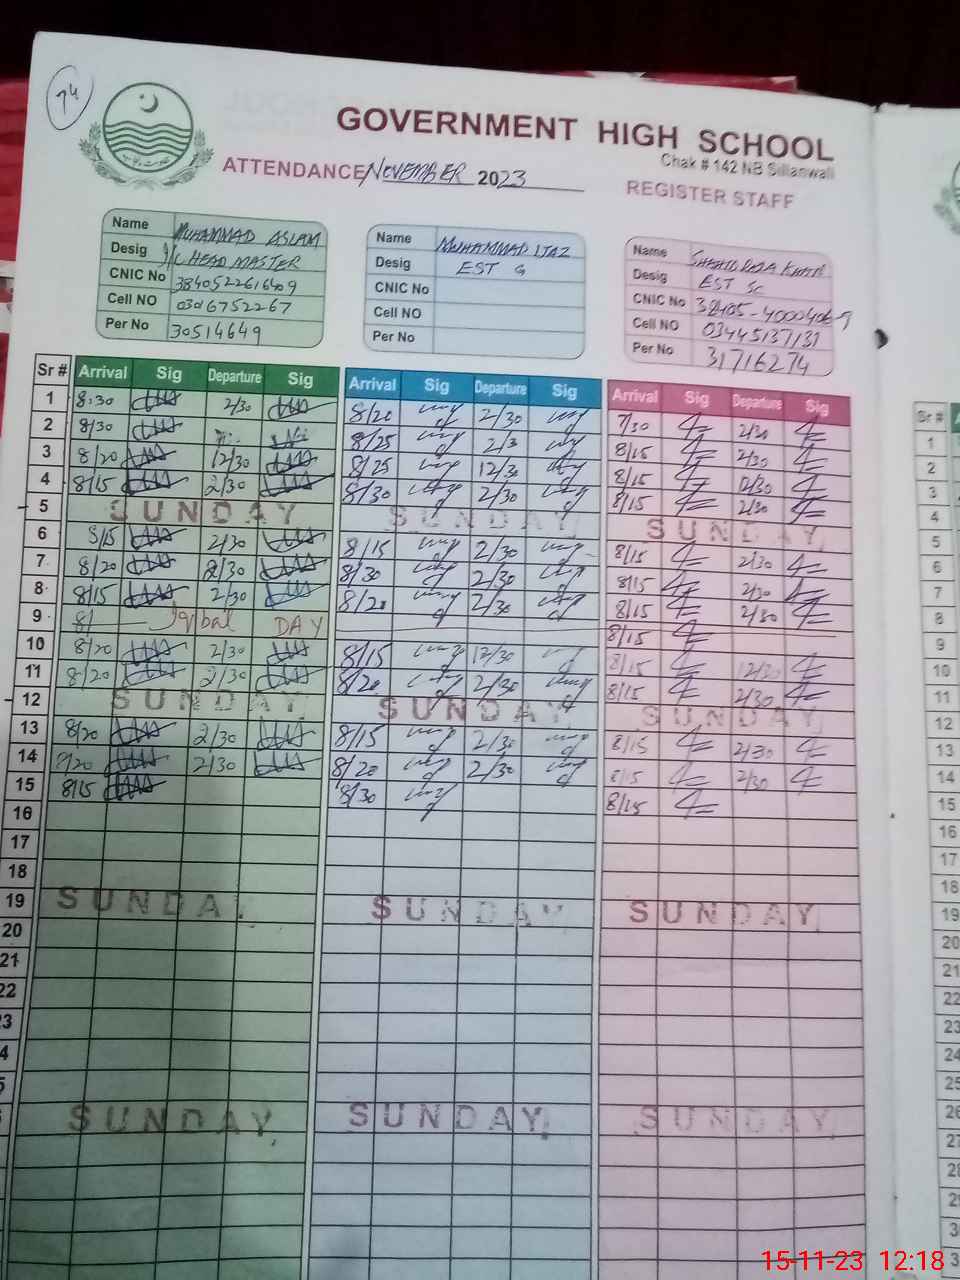 GOVERNMENT HIGH SCHOOL
Chak # 142 NB Sillanwali
ATTENDANCE NOVEMBER 2023
REGISTER STAFF
Name MUHAMMAD ASLAM
Desig I/C HEAD MASTER
CNIC No 3840522616409
Cell NO 03016752267
Per No 30514649
Name MUHAMMAD IJAZ
Desig EST G
CNIC No
Cell NO
Per No
Name SHAHID RAZA KHAN
Desig EST Sc
CNIC No 38405-4000406-9
Cell NO 03445137131
Per No 31716274
Sr # Arrival Sig Departure Sig Arrival Sig Departure Sig Arrival Sig Departure Sig
1 8:30 2/30 8/20 2/30 7/30 2/30
2 8/30 8/25 2/3 8/15 2/30
3 8/20 12/30 8/25 12/30 8/15 12/30
4 8/15 2/30 8/30 2/30 8/15 2/30
5 SUNDAY SUNDAY SUNDAY
6 8/15 2/30 8/15 2/30 8/15 2/30
7 8/20 2/30 8/30 2/30 8/15 2/30
8 8/15 2/30 8/20 2/30 8/15 2/30
9 8/ Iqbal DAY 8/15
10 8/20 2/30 8/15 12/30 8/15 12/30
11 8/20 2/30 8/20 2/30 8/15 2/30
12 SUNDAY SUNDAY SUNDAY
13 8/20 2/30 8/15 2/30 8/15 2/30
14 2/30 8/20 2/30 8/15 2/30
15 8/15 8/30 8/15
16
17
18
19 SUNDAY SUNDAY SUNDAY
20
21
22
23
SUNDAY SUNDAY SUNDAY
Sr #
1
2
3
4
5
6
7
8
9
10
11
12
13
14
15
16
17
18
19
20
21
22
23
24
25
26
27
15-11-23 12:18